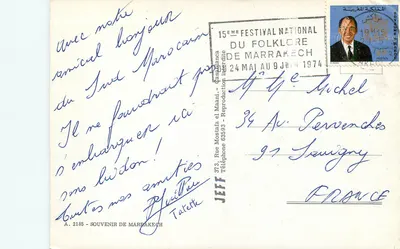 Avec notre
amical bonjour
du Sud Marocain
Il ne faudrait pas
s'embarquer ici
sans bidon!
Toutes mes amitiés
Tatette
A. 2185 - SOUVENIR DE MARRAKECH
JEFF 273, Rue Mostafa el Maani - Casablanca
Reproduction interdite
15EME FESTIVAL NATIONAL
DU FOLKLORE
DE MARRAKECH
24 MAI AU 9 JUIN 1974
Mr Me Michel
34 Av Pervenches
91 Savigny
FRANCE